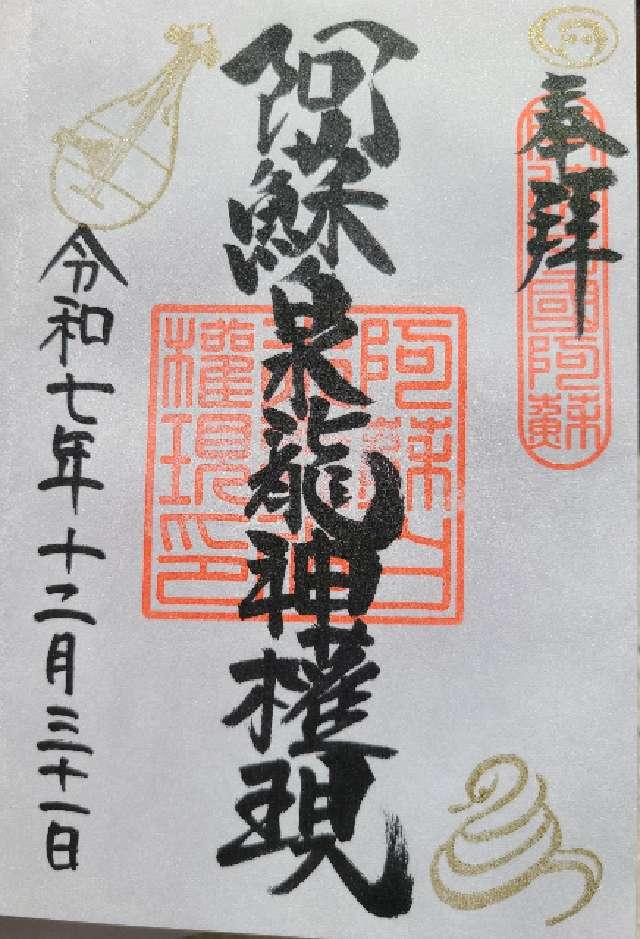 奉拝
阿蘇白水龍神權現
令和七年十二月三十一日
阿蘇白水龍神權現印